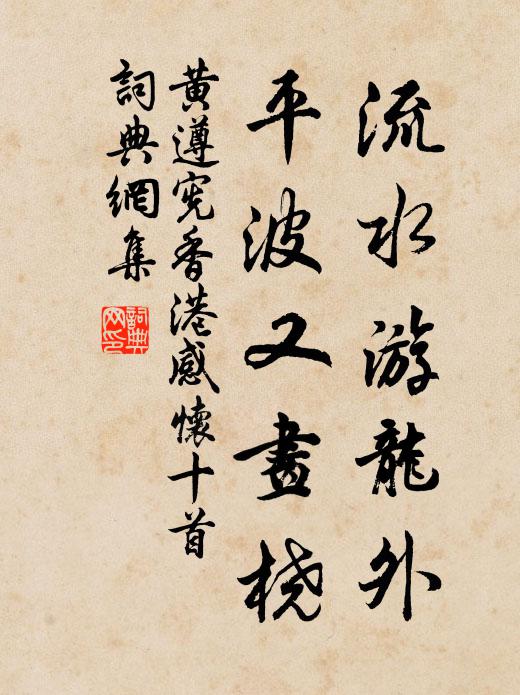 流水游龍外
平波又畫橈
黃遵憲香港感懷十首
詞典網集
詞典網印